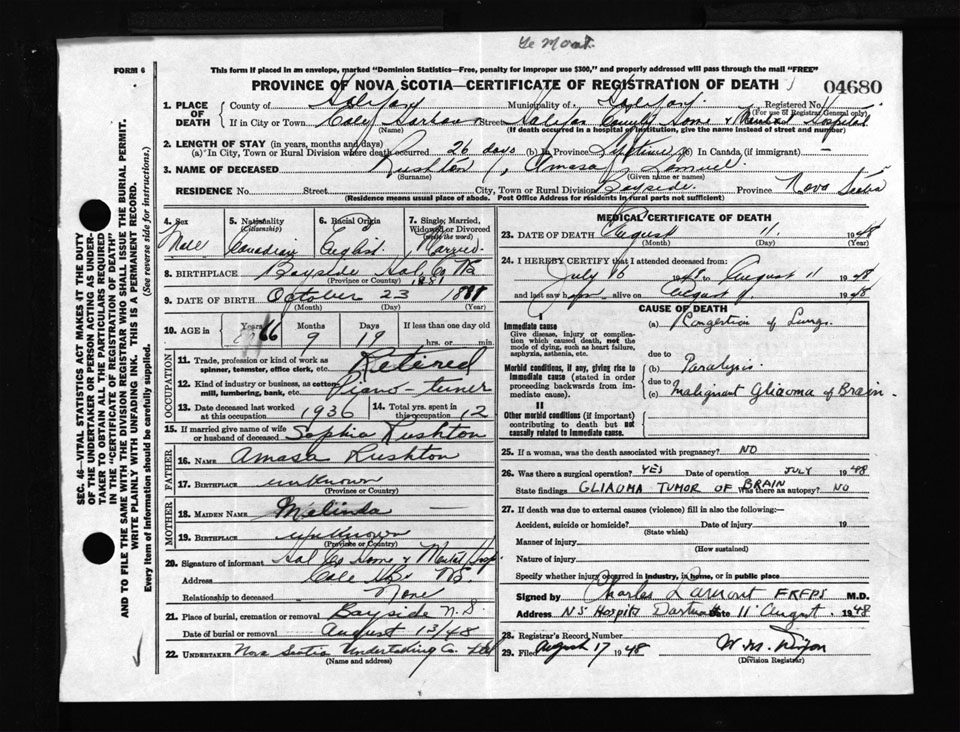 Le Mont.
FORM 6
This form if placed in an envelope, marked "Dominion Statistics—Free, penalty for improper use $300," and properly addressed will pass through the mail "FREE"
PROVINCE OF NOVA SCOTIA—CERTIFICATE OF REGISTRATION OF DEATH
04680
1. PLACE OF DEATH
County of Halifax Municipality of Halifax Registered No.
(For use of Registrar General only)
If in City or Town Cole Harbour Street Halifax County Home & Mental Hospital
(Name) (If death occurred in a hospital or institution, give the name instead of street and number)
2. LENGTH OF STAY (in years, months and days)
(a) In City, Town or Rural Division where death occurred 26 days (b) In Province Lifetime (c) In Canada (if immigrant) —
3. NAME OF DECEASED Rushton, Amasa Lemuel
(Surname) (Given name or names)
RESIDENCE No. Street City, Town or Rural Division Bayside Province Nova Scotia
(Residence means usual place of abode. Post Office Address for residents in rural parts not sufficient)
4. Sex Male
5. Nationality (Citizenship) Canadian
6. Racial Origin English
7. Single, Married, Widowed or Divorced (write the word) Married
8. BIRTHPLACE Bayside Hal. Co. NS
(Province or Country)
1881
9. DATE OF BIRTH October 23 18
(Month) (Day) (Year)
10. AGE in Years 66 Months 9 Days 19 If less than one day old hrs. or min.
OCCUPATION
11. Trade, profession or kind of work as spinner, teamster, office clerk, etc. Retired
12. Kind of industry or business, as cotton mill, lumbering, bank, etc. Piano-tuner
13. Date deceased last worked at this occupation 1936 14. Total yrs. spent in this occupation 12
15. If married give name of wife or husband of deceased Sophia Rushton
FATHER
16. NAME Amasa Rushton
17. BIRTHPLACE unknown
(Province or Country)
MOTHER
18. MAIDEN NAME Malinda —
19. BIRTHPLACE unknown
(Province or Country)
20. Signature of informant Hal Co Home & Mental Hosp.
Address Cole Hbr NS.
Relationship to deceased None
21. Place of burial, cremation or removal Bayside N.S.
Date of burial or removal August 13/48
22. UNDERTAKER Nova Scotia Undertaking Co. Ltd
(Name and address)
MEDICAL CERTIFICATE OF DEATH
23. DATE OF DEATH August 11. 1948
(Month) (Day) (Year)
24. I HEREBY CERTIFY that I attended deceased from:
July 16 1948 to August 11 1948
and last saw h alive on August 1948
CAUSE OF DEATH
I
Immediate cause
Give disease, injury or complication which caused death, not the mode of dying, such as heart failure, asphyxia, asthenia, etc.
(a) Congestion of Lung.
due to
Morbid conditions, if any, giving rise to immediate cause (stated in order proceeding backwards from immediate cause).
(b) Paralysis
due to
(c) Malignant Gliaoma of Brain.
II
Other morbid conditions (if important) contributing to death but not causally related to immediate cause.
25. If a woman, was the death associated with pregnancy? NO
26. Was there a surgical operation? YES Date of operation JULY 1948
State findings GLIAOMA TUMOR OF BRAIN Was there an autopsy? NO
27. If death was due to external causes (violence) fill in also the following:—
Accident, suicide or homicide? Date of injury 19
(State which)
Manner of injury
(How sustained)
Nature of injury
Specify whether injury occurred in industry, in home, or in public place
Signed by Charles Lamont FRFPS M.D.
Address N S Hospital Dartmouth Date 11 August. 1948
28. Registrar's Record Number
29. Filed August 17 1948
(Division Registrar)
SEC. 46—VITAL STATISTICS ACT MAKES IT THE DUTY OF THE UNDERTAKER OR PERSON ACTING AS UNDERTAKER TO OBTAIN ALL THE PARTICULARS REQUIRED IN THE "CERTIFICATE OF REGISTRATION OF DEATH" AND TO FILE THE SAME WITH THE DIVISION REGISTRAR WHO SHALL ISSUE THE BURIAL PERMIT.
WRITE PLAINLY WITH UNFADING INK. THIS IS A PERMANENT RECORD.
Every item of information should be carefully supplied. (See reverse side for instructions.)